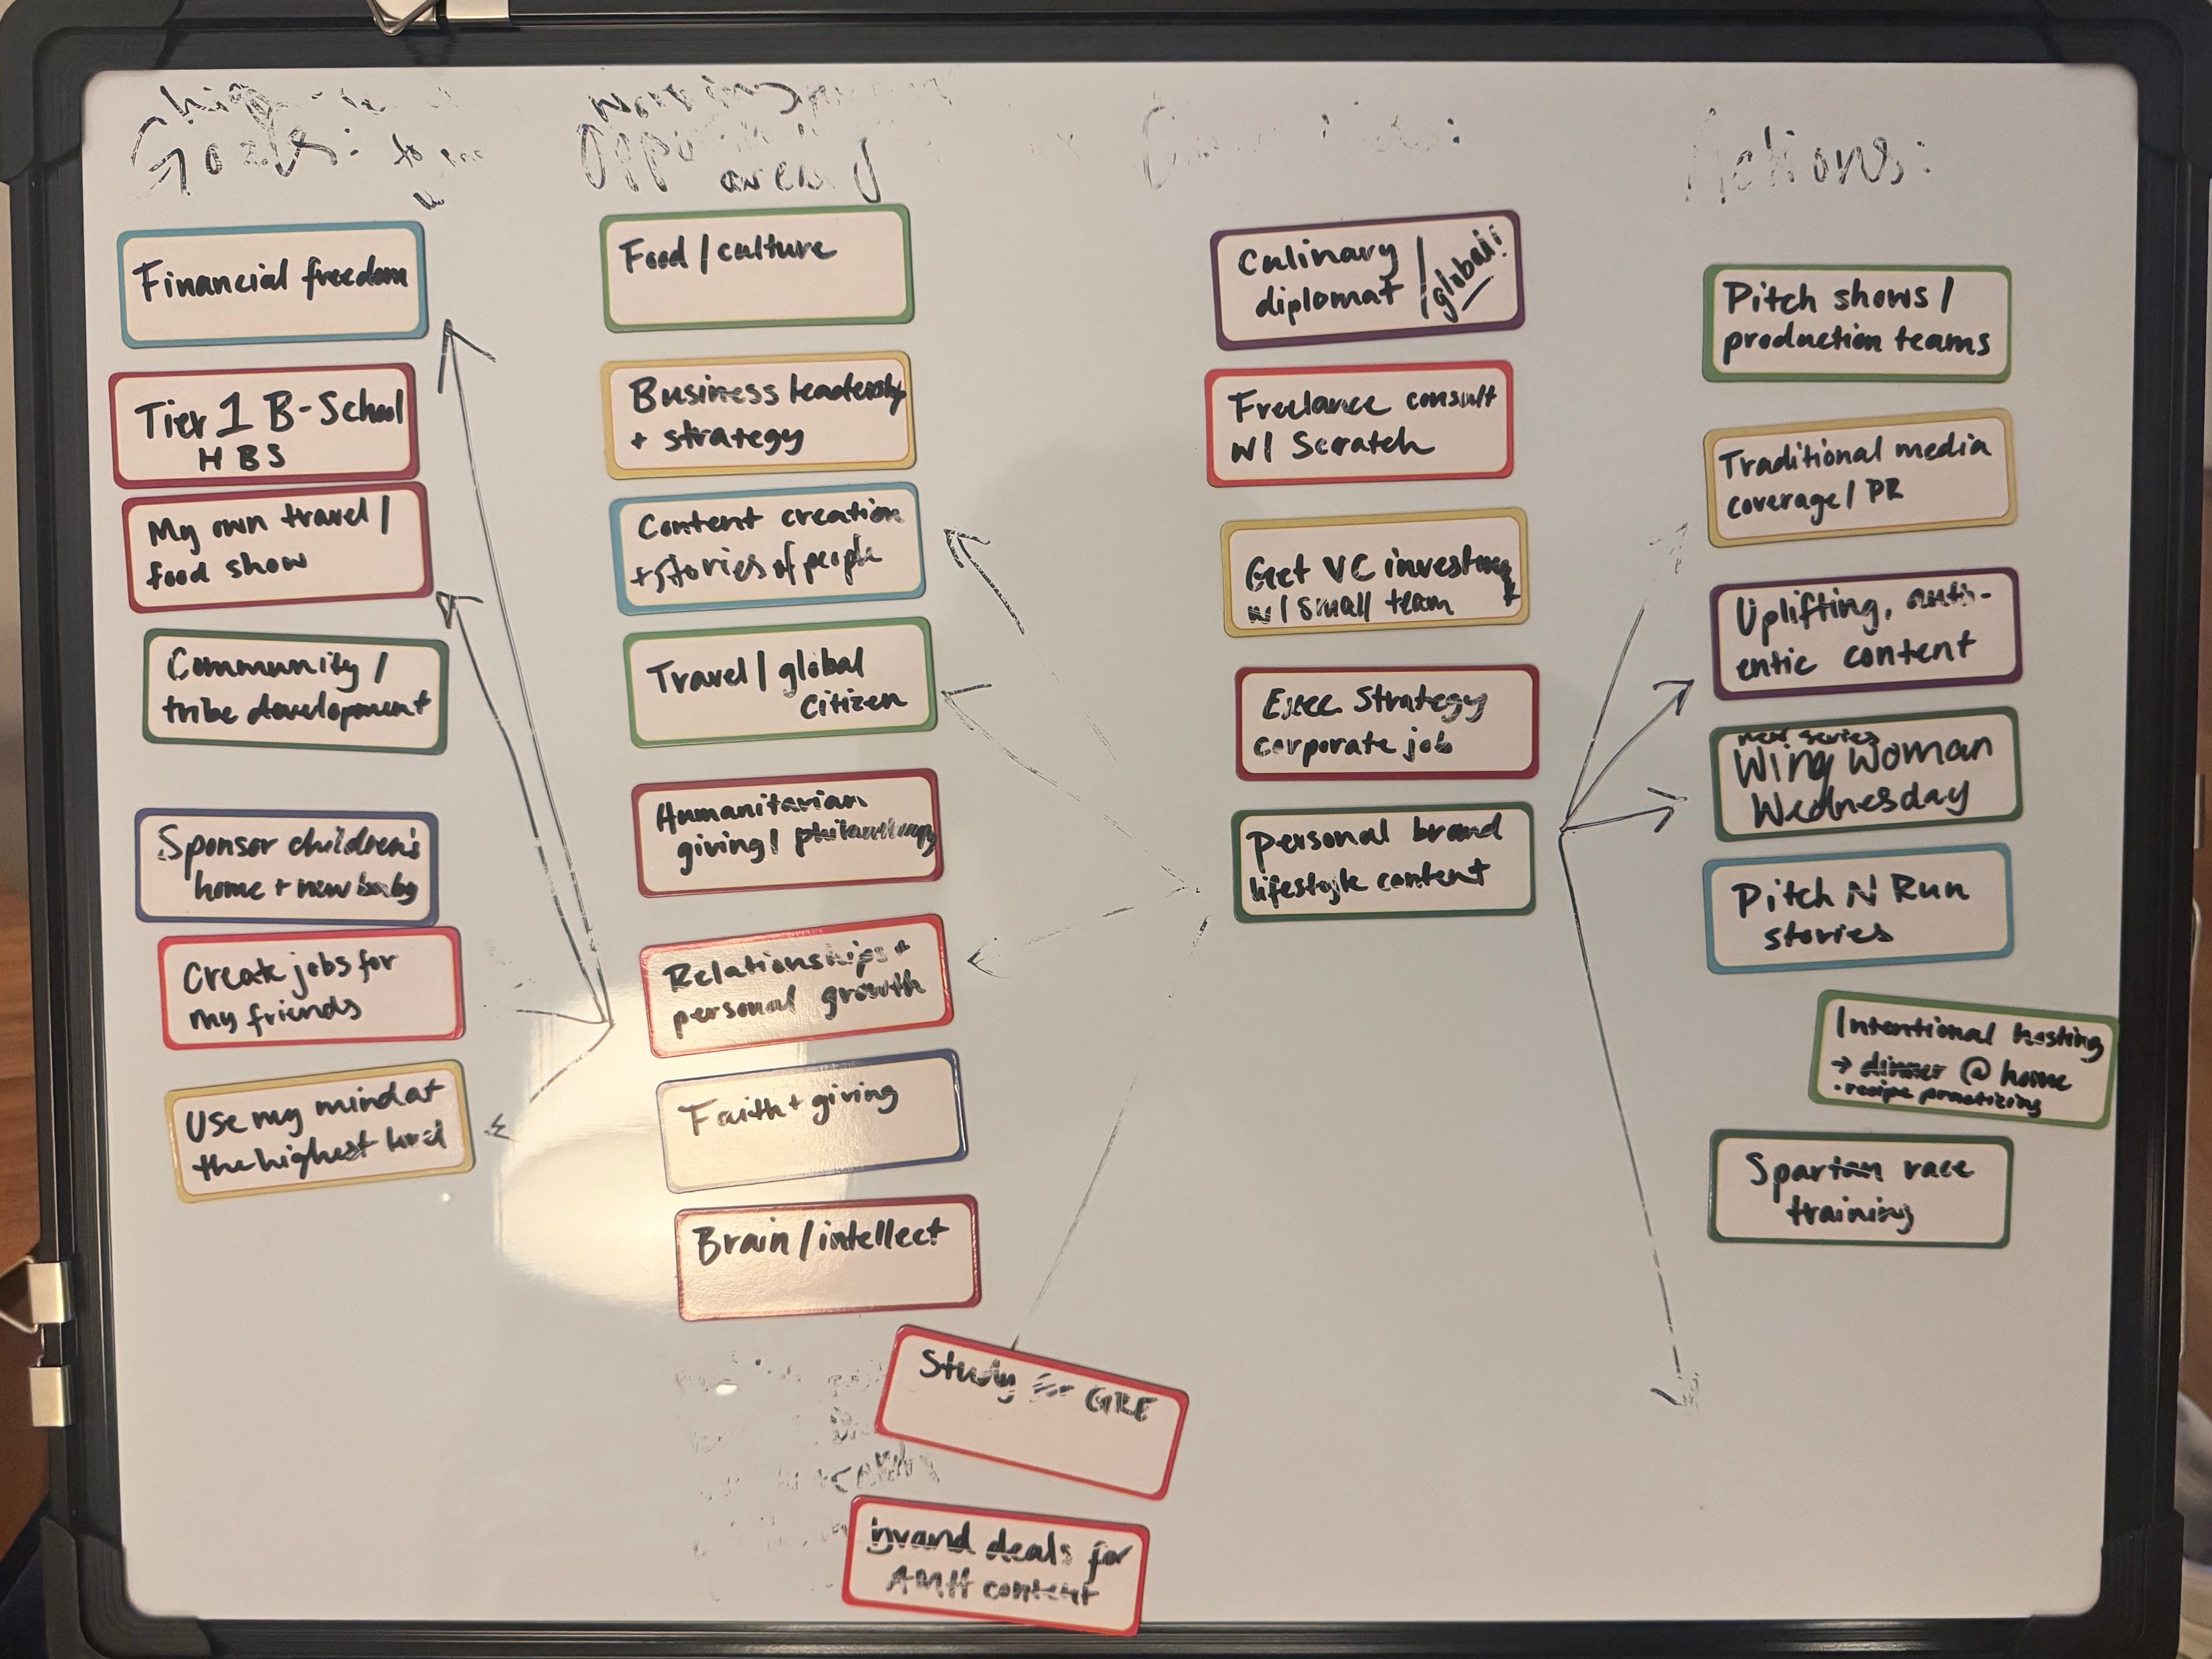 Goals: to
area
Actions:
Financial freedom
Tier 1 B-School
HBS
My own travel /
food show
Community /
tribe development
Sponsor children's
home + new baby
Create jobs for
my friends
Use my mind at
the highest level
Food / culture
Business leadership
+ strategy
Content creation
+ stories of people
Travel / global
citizen
Humanitarian
giving / philanthropy
Relationships +
personal growth
Faith + giving
Brain / intellect
Study for GRE
brand deals for
AMH content
Culinary
diplomat / global!
Freelance consult
w/ Scratch
Get VC investment
w/ small team
Exec. Strategy
corporate job
Personal brand
lifestyle content
Pitch shows /
production teams
Traditional media
coverage / PR
Uplifting, auth-
entic content
new series
Wing Woman
Wednesday
Pitch N Run
stories
Intentional hosting
→ dinner @ home
• recipe practicing
Spartan race
training